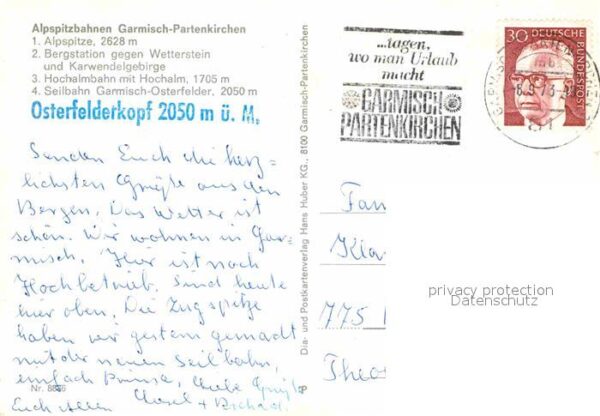 Alpspitzbahnen Garmisch-Partenkirchen
1. Alpspitze, 2628 m
2. Bergstation gegen Wetterstein
und Karwendelgebirge
3. Hochalmbahn mit Hochalm, 1705 m
4. Seilbahn Garmisch-Osterfelder, 2050 m
Osterfelderkopf 2050 m ü. M.
Senden Euch die herz=
lichsten Grüße aus den
Bergen. Das Wetter ist
schön. Wir wohnen in Gar=
misch. Hier ist noch
Hochbetrieb. Sind heute
hier oben. Die Zugspitze
haben wir gestern gemacht
mit der neuen Seilbahn,
einfach Prima, Viele Grüße
Euch allen
Nr. 8846
Dia- und Postkartenverlag Hans Huber KG., 8100 Garmisch-Partenkirchen
...tagen,
wo man Urlaub
macht
GARMISCH
PARTENKIRCHEN
30 DEUTSCHE
BUNDESPOST
Fam
Kla
775
Theo
privacy protection
Datenschutz